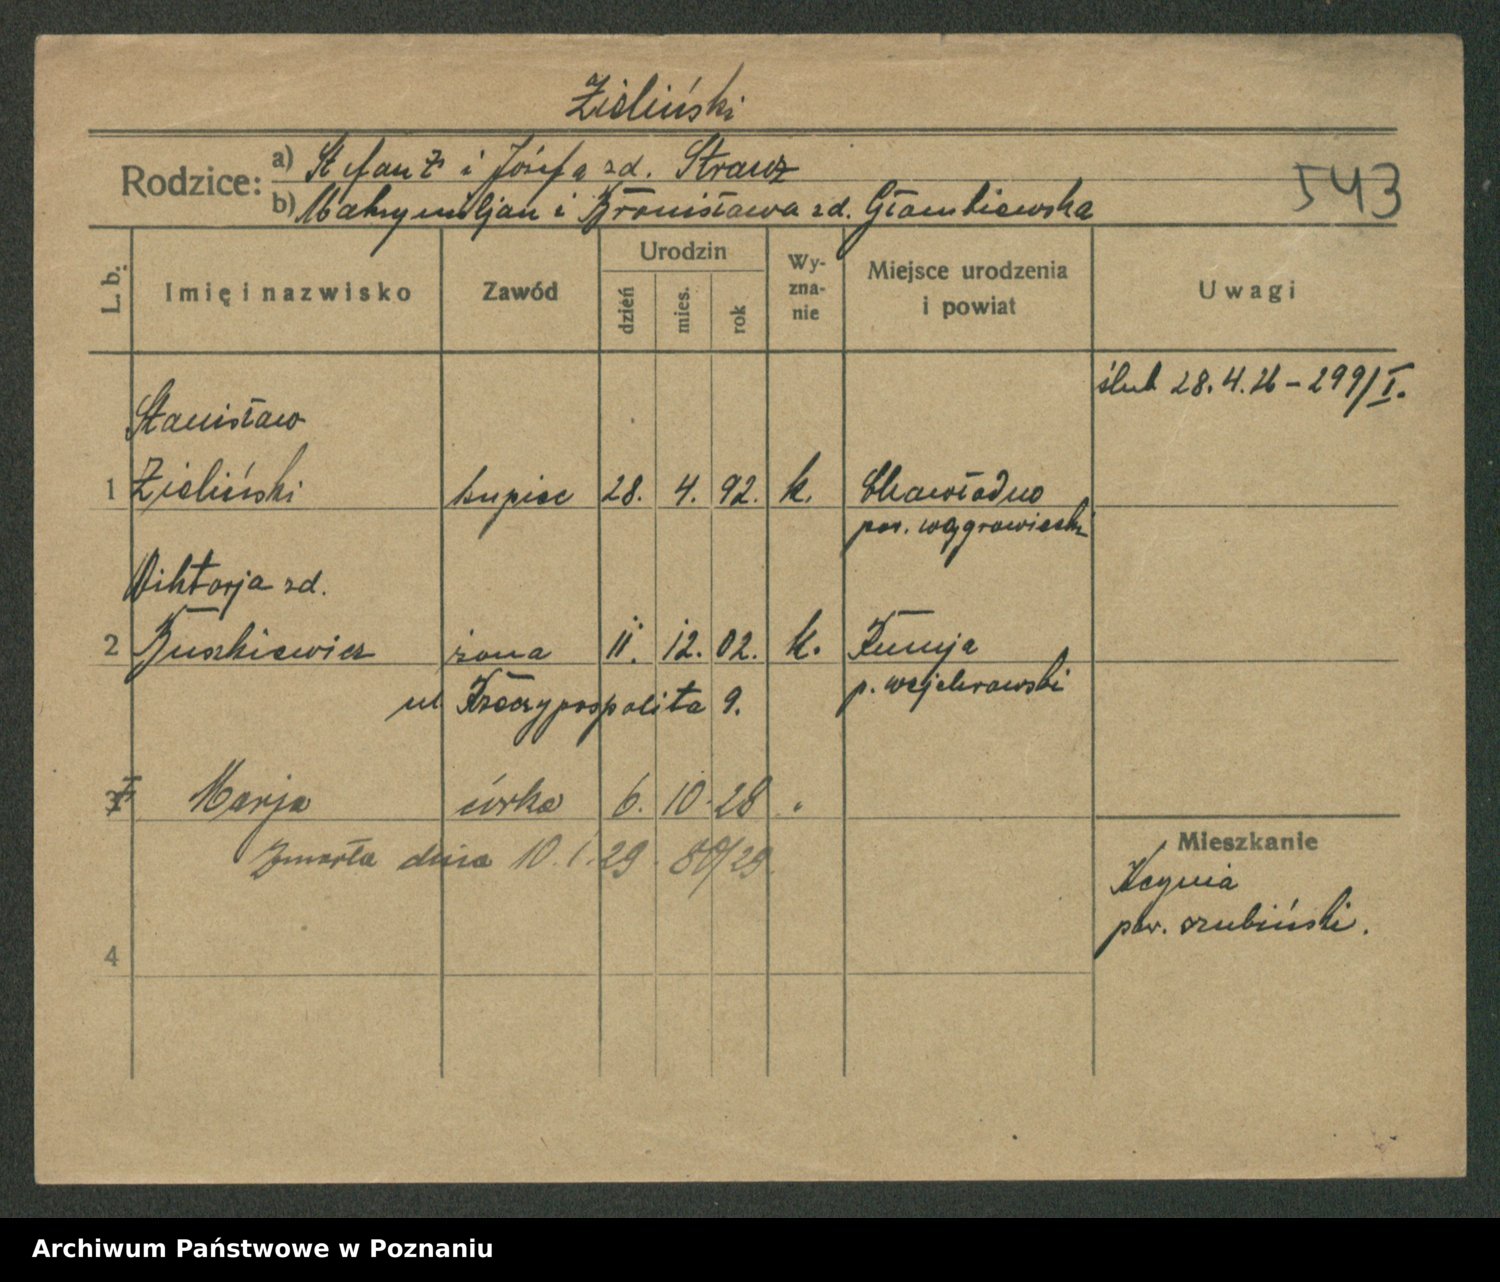 Zieliński
Rodzice: a) Stefan Z i Józefa zd. Strauz
b) Maksymiljan i Bronisława zd. Głambiewska
543
L. b. Imię i nazwisko Zawód Urodzin dzień mies. rok Wyznanie Miejsce urodzenia i powiat Uwagi
ślub 28.4.26 – 299/I.
Stanisław
1 Zieliński kupiec 28. 4. 92. k. Chawłodno
pow. wągrowiecki
Wiktorja zd.
2 Buszkiewicz żona 11. 12. 02. k.
p. wejherowski
ul Rzeczypospolita 9.
3 Marja córka 6. 10. 28
Mieszkanie
Zmarła dnia 10.1.29. 80/29.
Kcynia
pow. szubiński.
4
Archiwum Państwowe w Poznaniu